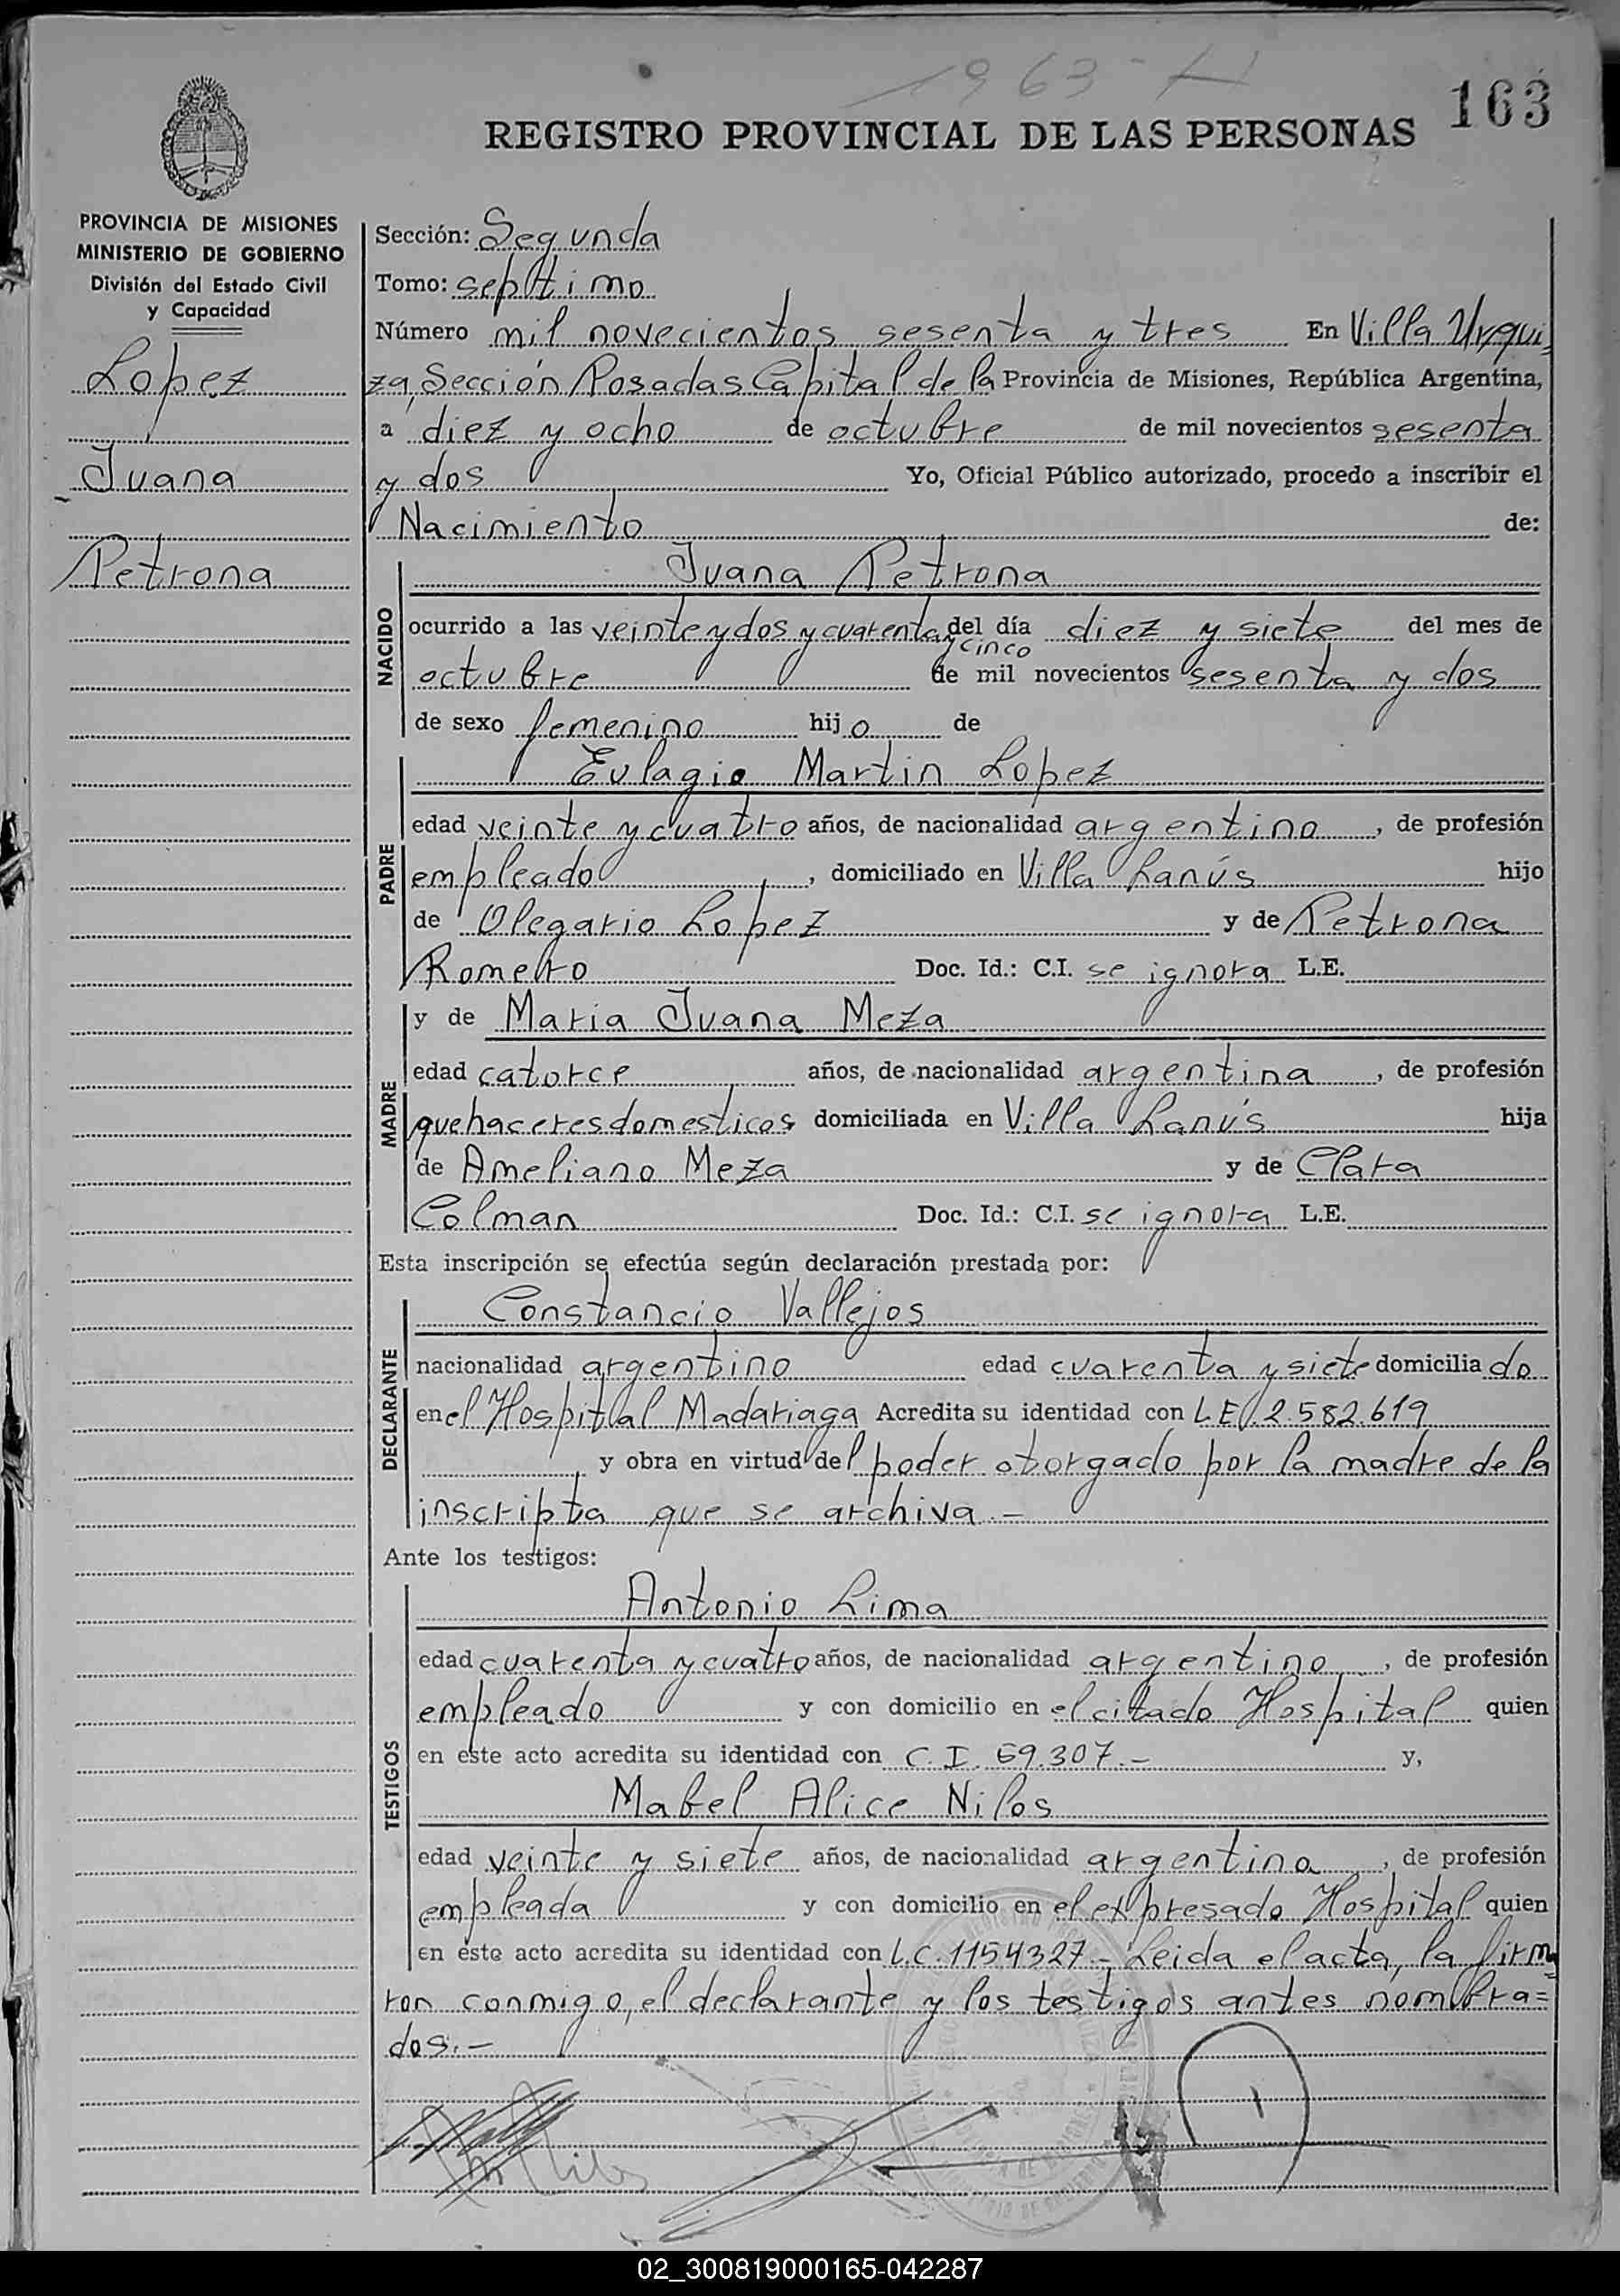 1963-H
163
REGISTRO PROVINCIAL DE LAS PERSONAS
PROVINCIA DE MISIONES
MINISTERIO DE GOBIERNO
División del Estado Civil
y Capacidad
Lopez
Juana
Petrona
Sección: Segunda
Tomo: septtimo
Número mil novecientos sesenta y tres En Villa Urqui=
za, Sección Posadas Capital de la Provincia de Misiones, República Argentina,
a diez y ocho de octubre de mil novecientos sesenta
y dos Yo, Oficial Público autorizado, procedo a inscribir el
Nacimiento de:
NACIDO
Juana Petrona
ocurrido a las veinte y dos y cuarenta y cinco del día diez y siete del mes de
octubre de mil novecientos sesenta y dos
de sexo femenino hijo de
PADRE
Eulagio Martin Lopez
edad veinte y cuatro años, de nacionalidad argentino, de profesión
empleado, domiciliado en Villa Lanús hijo
de Olegario Lopez y de Petrona
Romero Doc. Id.: C.I. se ignora L.E.
MADRE
y de Maria Juana Meza
edad catorce años, de nacionalidad argentina, de profesión
quehaceres domesticos domiciliada en Villa Lanús hija
de Ameliano Meza y de Clara
Colman Doc. Id.: C.I. se ignora L.E.
Esta inscripción se efectúa según declaración prestada por:
DECLARANTE
Constancio Vallejos
nacionalidad argentino edad cuarenta y siete domiciliado
en el Hospital Madariaga Acredita su identidad con L.E. 2.582.619
y obra en virtud del poder otorgado por la madre de la
inscripta que se archiva.-
Ante los testigos:
TESTIGOS
Antonio Lima
edad cuarenta y cuatro años, de nacionalidad argentino, de profesión
empleado y con domicilio en el citado Hospital quien
en este acto acredita su identidad con C.I. 69.307.- y,
Mabel Alice Nilos
edad veinte y siete años, de nacionalidad argentina, de profesión
empleada y con domicilio en el expresado Hospital quien
en este acto acredita su identidad con L.C. 1154327.- Leida el acta, la firma=
ron conmigo, el declarante y los testigos antes nombra=
dos.-
02_300819000165-042287